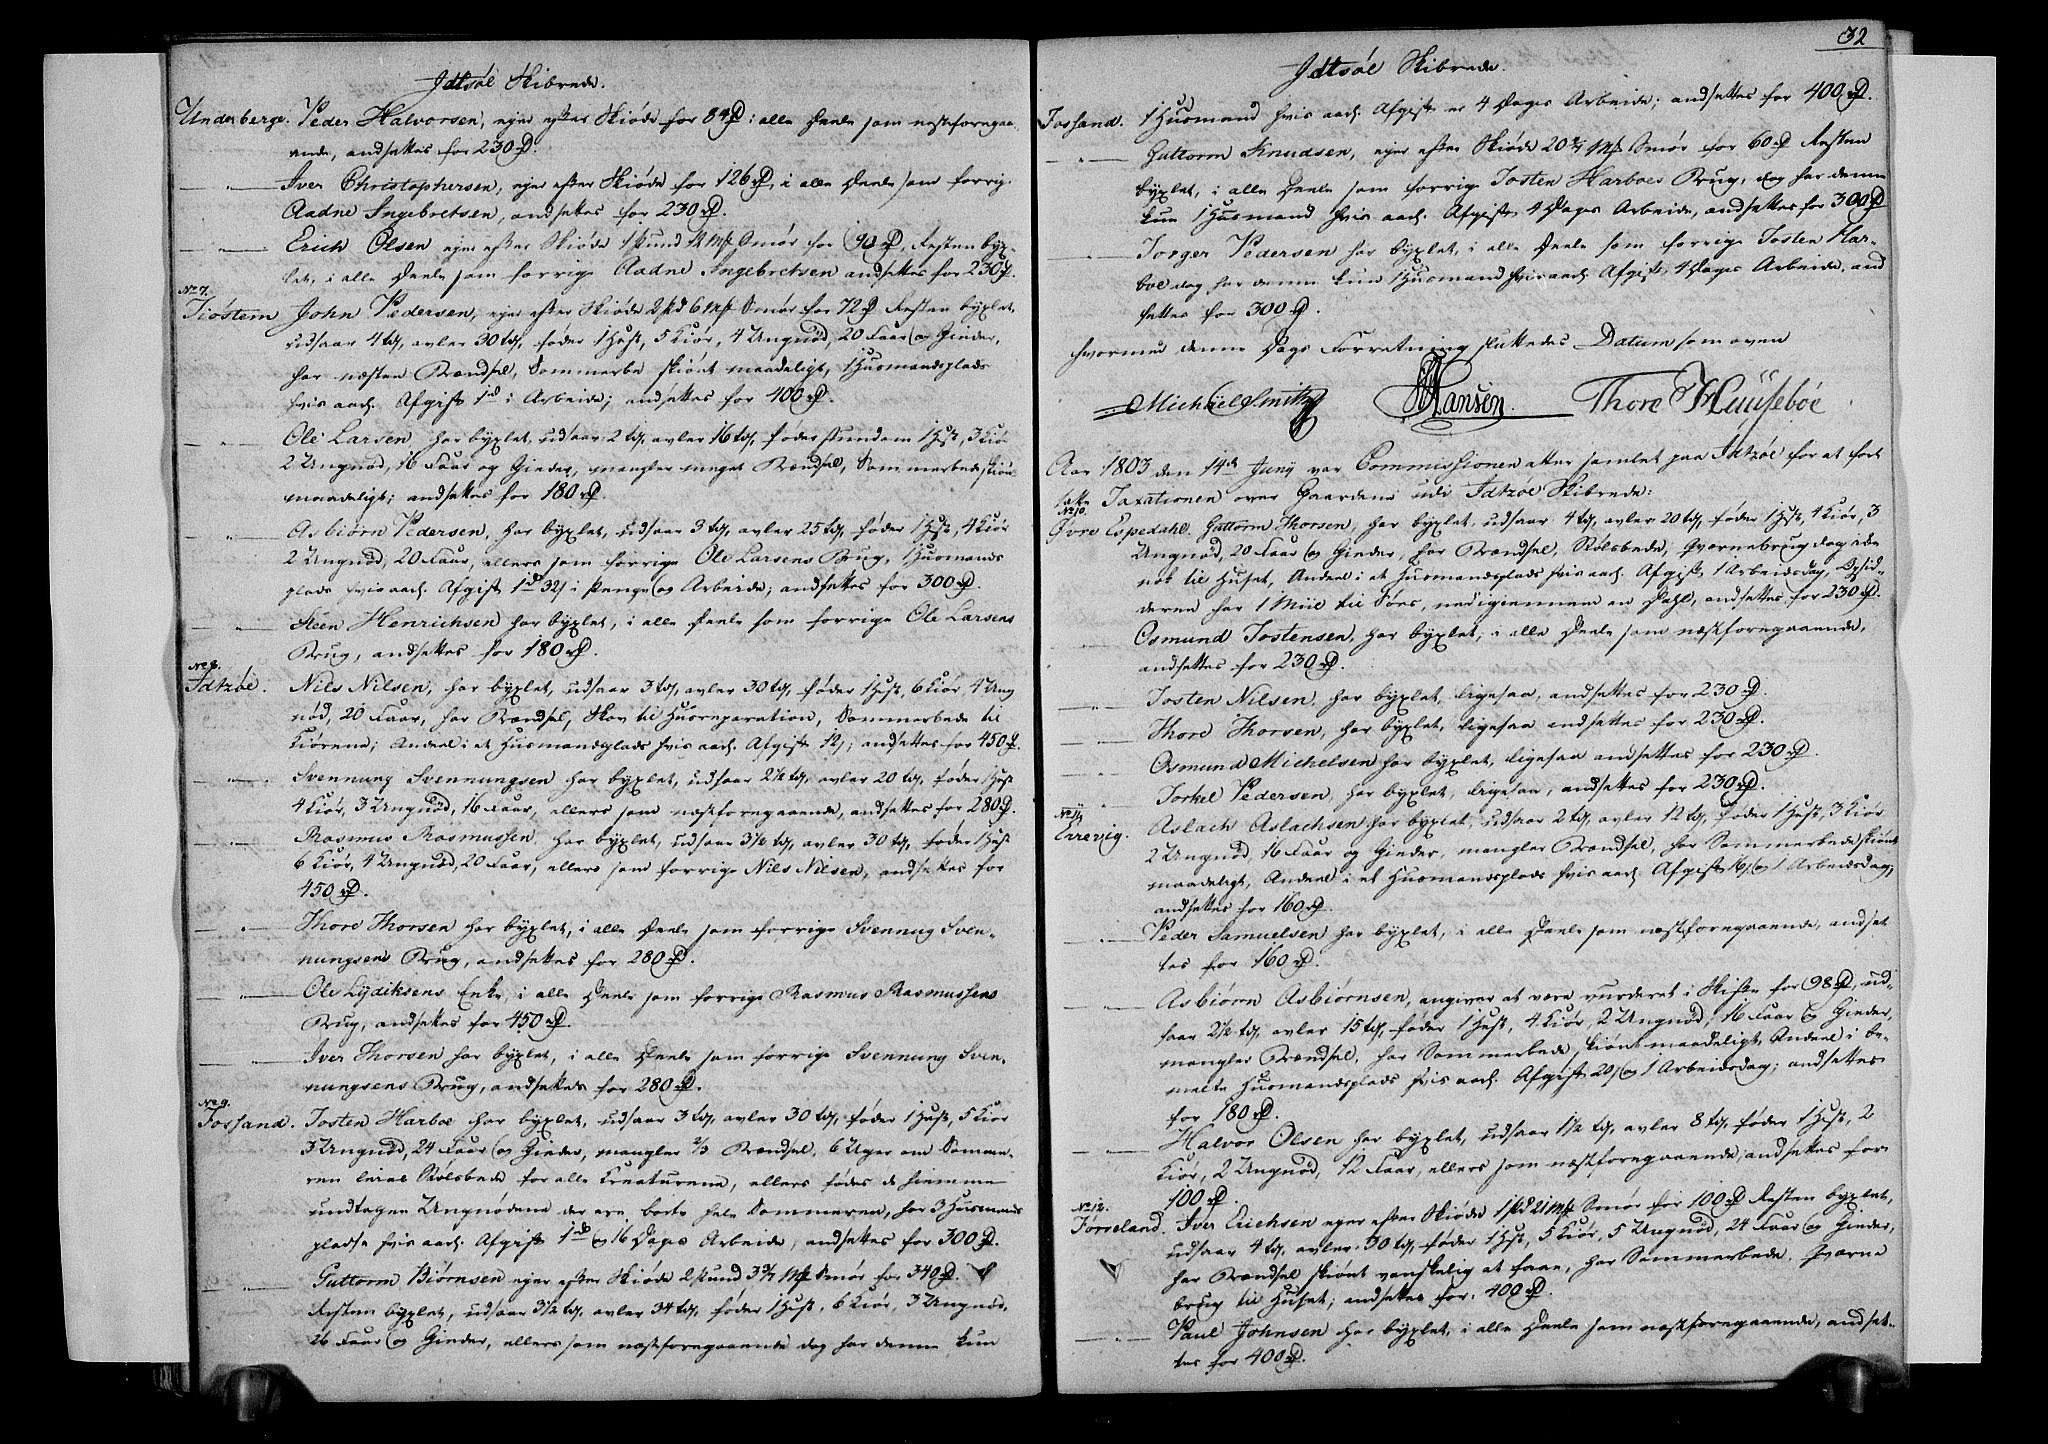 Jdtsöe Skibrede.
Underberge. Peder Halvorsen, ejer efter Skiøde for 84 rd: i alle Deele som næstforegaa-
ende, andsettes for 230 rd.
—"— Iver Christophersen, ejer efter Skiøde for 126 rd, i alle Deele som forrige
Aadne Ingebretsen, andsettes for 230 rd.
—"— Erich Olsen ejer efter Skiøde 1 pund Smør for 90 rd, Resten byx-
let, i alle Deele som forrige Aadne Ingebretsen andsettes for 230 rd.
No 7.
Tiøstem John Pedersen, ejer efter Skiøde 2 pd 6 mk Smør for 72 rd Resten byxlet,
udsaar 4 tdr, avler 30 tdr, føder 1 Hest, 5 Kiør, 4 Ungnöd, 20 Faar og Gieder,
har næsten Brændsel, Sommerbe skiønt maadeligt, 1 Huusmandsplads
hvis aarl. Afgift 1 rd i Arbeide; andsettes for 400 rd.
—"— Ole Larsen, har byxlet, udsaar 2 tdr, avler 16 tdr, føder stundom 1 Hest, 3 Kiør
2 Ungnöd, 16 Faar og Gieder, mangler meget Brændsel, Sommerbede skiønt
maadeligt; andsettes for 180 rd.
—"— Asbiørn Pedersen, har byxlet, udsaar 3 tdr, avler 25 tdr, føder 1 Hest, 4 Kiør
2 Ungnöd, 20 Faar, ellers som forrige Ole Larsens Brug, 1 Huusmands
plads hvis aarl. Afgift 1 rd 32 s i Penge og Arbeide; andsettes for 300 rd.
—"— Steen Henrichsen har byxlet, i alle Deele som forrige Ole Larsens
Brug, andsettes for 180 rd.
No 8.
Idtzöe. Nils Nilsen, har byxlet, udsaar 3 tdr, avler 30 tdr, føder 1 Hest, 6 Kiør, 4 Ung
nöd, 20 Faar, har Brændsel, Skov til Huusreparation, Sommerbede til
Kiørene; Andeel i et Huusmandsplads hvis aarl. Afgift 12 s; andsettes for 450 rd.
—"— Svennung Svennungsen har byxlet, udsaar 2 1/2 tdr, avler 20 tdr, føder 1 Hest
4 Kiør, 3 Ungnöd, 16 Faar, ellers som næstforegaaende, andsettes for 280 rd.
—"— Rasmus Rasmussen, har byxlet, udsaar 3 1/2 tdr, avler 30 tdr, føder 1 Hest
6 Kiør, 4 Ungnöd, 20 Faar, ellers som forrige Nils Nilsen, andsettes for
450 rd.
—"— Thore Thorsen har byxlet, i alle Deele som forrige Svennug Sven-
nungsens Brug, andsettes for 280 rd.
—"— Ole Lydiksens Enke, i alle Deele som forrige Rasmus Rasmussens
Brug, andsettes for 450 rd.
—"— Iver Thorsen har byxlet, i alle Deele som forrige Svennung Sven-
nungsens Brug, andsettes for 280 rd.
No 9.
Fossand. Tosten Harboe har byxlet, udsaar 3 tdr, avler 30 tdr, føder 1 Hest, 5 Kiør
3 Ungnöd, 24 Faar og Gieder, mangler 2/3 Brændsel, 6 Uger om Somme-
ren leies Stølsbede for alle Kreaturene, ellers fødes de hiemme
undtagen Ungnödene der ere borte hele Sommeren, har 3 Huusmands
pladse hvis aarl. Afgift 1 rd og 16 Dages Arbeide, andsettes for 300 rd.
—"— Guttorm Biørnsen ejer efter Skiøde 2 pund 3 3/7 mk Smør for 340 rd.
Resten byxlet, udsaar 3 1/2 tdr, avler 34 tdr, føder 1 Hest, 6 Kiør, 3 Ungnöd,
26 Faar og Gieder, ellers som næstforegaaende dog har denne kun
32
Jdtsöe Skibrede.
Fossand. 1 Huusmand hvis aarl. Afgift er 4 Dages Arbeide; andsettes for 400 rd.
—"— Guttorm Knudsen, ejer efter Skiøde mk Smør for 60 rd Resten
byxlet, i alle Deele som forrige Tosten Harboes Brug, dog har denne
kun 1 Huusmand hvis aarl. Afgift 4 Dages Arbeide, andsettes for 300 rd
—"— Torger Pedersen har byxlet, i alle Deele som forrige Tosten Har-
boe dog har denne kun 1 Huusmand hvis aarl. Afgift 4 Dages Arbeide, and
settes for 300 rd.
hvormed denne Dags Forretning sluttedes Datum som oven
Michael Smith Hansen Thore Huusebøe
Aar 1803 den 14de Juny var Commissionen atter samlet paa Idtzöe for at fort
sætte Taxationen over Gaardene udi Idtzöe Skibrede:
No 10.
Øvre Espedahl. Guttorm Thorsen, har byxlet, udsaar 4 tdr, avler 20 tdr, føder 1 Hest, 4 Kiør, 3
Ungnöd, 20 Faar og Gieder, har Brændsel, Stølsbede, Qværnebrug dog ikke
nok til Huset, Andeel i et Huusmandsplads hvis aarl. Afgift, 1 Arbeidsdag, Opsid-
derne har 1 Miil til Søes, nedigiennem en Dahl, andsettes for 230 rd.
Osmund Tostensen, har byxlet, i alle Deele som næstforegaaende,
andsettes for 230 rd.
—"— Tosten Nilsen, har byxlet, ligesaa, andsettes for 230 rd.
—"— Thore Thorsen, har byxlet, ligesaa andsettes for 230 rd.
—"— Osmund Michelsen har byxlet, ligesaa andsettes for 230 rd
—"— Torkel Pedersen, har byxlet, ligesaa, andsettes for 230 rd.
No 11.
Errevig. Aslach Aslachsen har byxlet, udsaar 2 tdr, avler 12 tdr, føder 1 Hest, 3 Kiør
2 Ungnöd, 16 Faar og Gieder, mangler Brændsel, har Sommerbede skiønt
maadeligt, Andeel i et Huusmandsplads hvis aarl. Afgift 16 s og 1 Arbeidsdag;
andsettes for 160 rd.
—"— Peder Samuelsen har byxlet, i alle Deele som næstforegaaende, andset
tes for 160 rd.
—"— Asbiørn Asbiørnsen, angiver at være vurderet i Skifte for 98 rd, ud-
saar 2 1/2 tdr, avler 15 tdr, føder 1 Hest, 4 Kiør, 2 Ungnöd, 16 Faar og Gieder,
mangler Brændsel, har Sommerbede, skiønt maadeligt, Andeel i be-
meldte Huusmandsplads hvis aarl. Afgift 20 s og 1 Arbeidsdag; andsettes
for 180 rd.
—"— Halvor Olsen har byxlet, udsaar 1 1/2 tdr, avler 8 tdr, føder 1 Hest, 2
Kiør, 2 Ungnöd, 12 Faar, ellers som næstforegaaende, andsettes for
100 rd.
No 12.
Førreland. Iver Erichsen ejer efter Skiøde 1 pd 21 mk Smør for 100 rd Resten byxlet,
udsaar 4 tdr, avler 30 tdr, føder 1 Hest, 5 Kiør, 5 Ungnöd, 24 Faar og Gieder,
har Brændsel skiønt vanskelig at faae, har Sommerbede, Qværne
brug til Huset; andsettes for 400 rd.
—"— Paul Johnsen har byxlet, i alle Deele som næstforegaaende, andset-
tes for 400 rd.